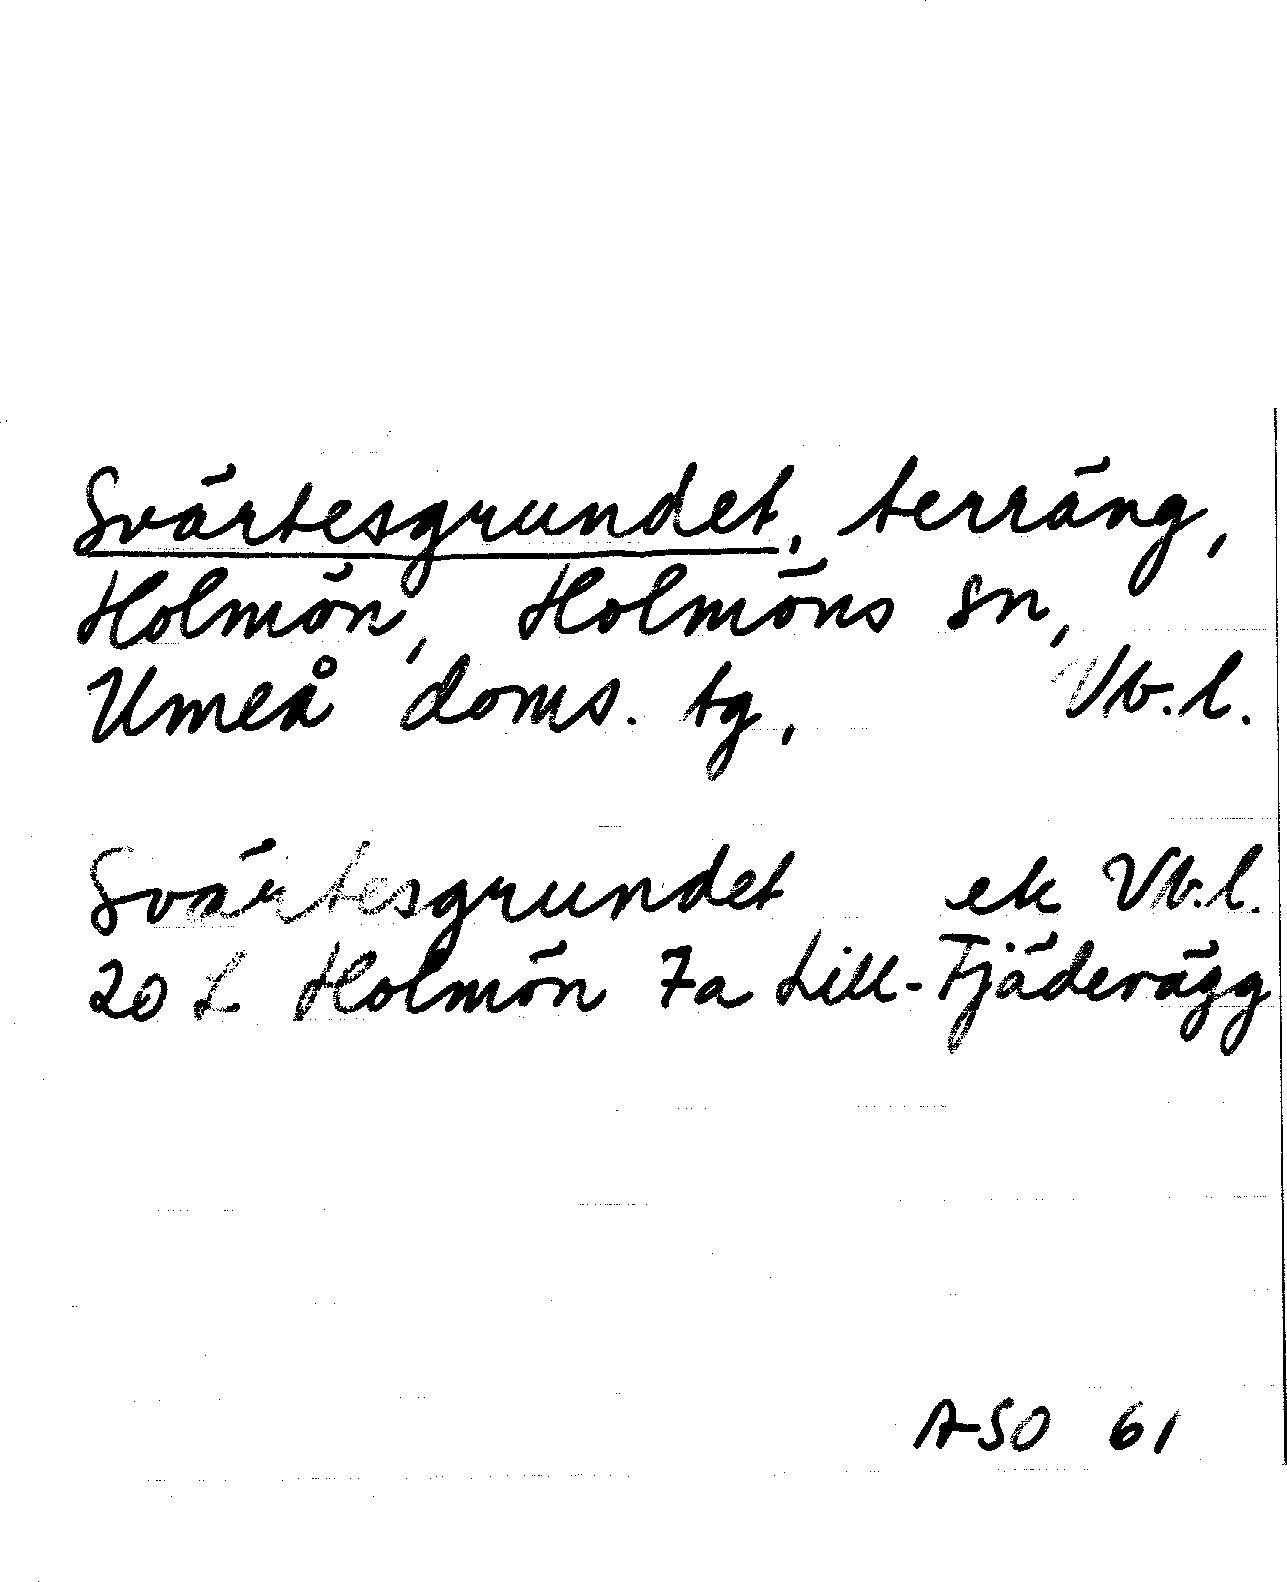 Svärtesgrundet, terräng,
Holmön, Holmöns sn,
Umeå doms. tg, Vb.l.
Svärtesgrundet ek Vb.l.
20 L Holmön 7a Lill-Tjäderägg
A-SO 61